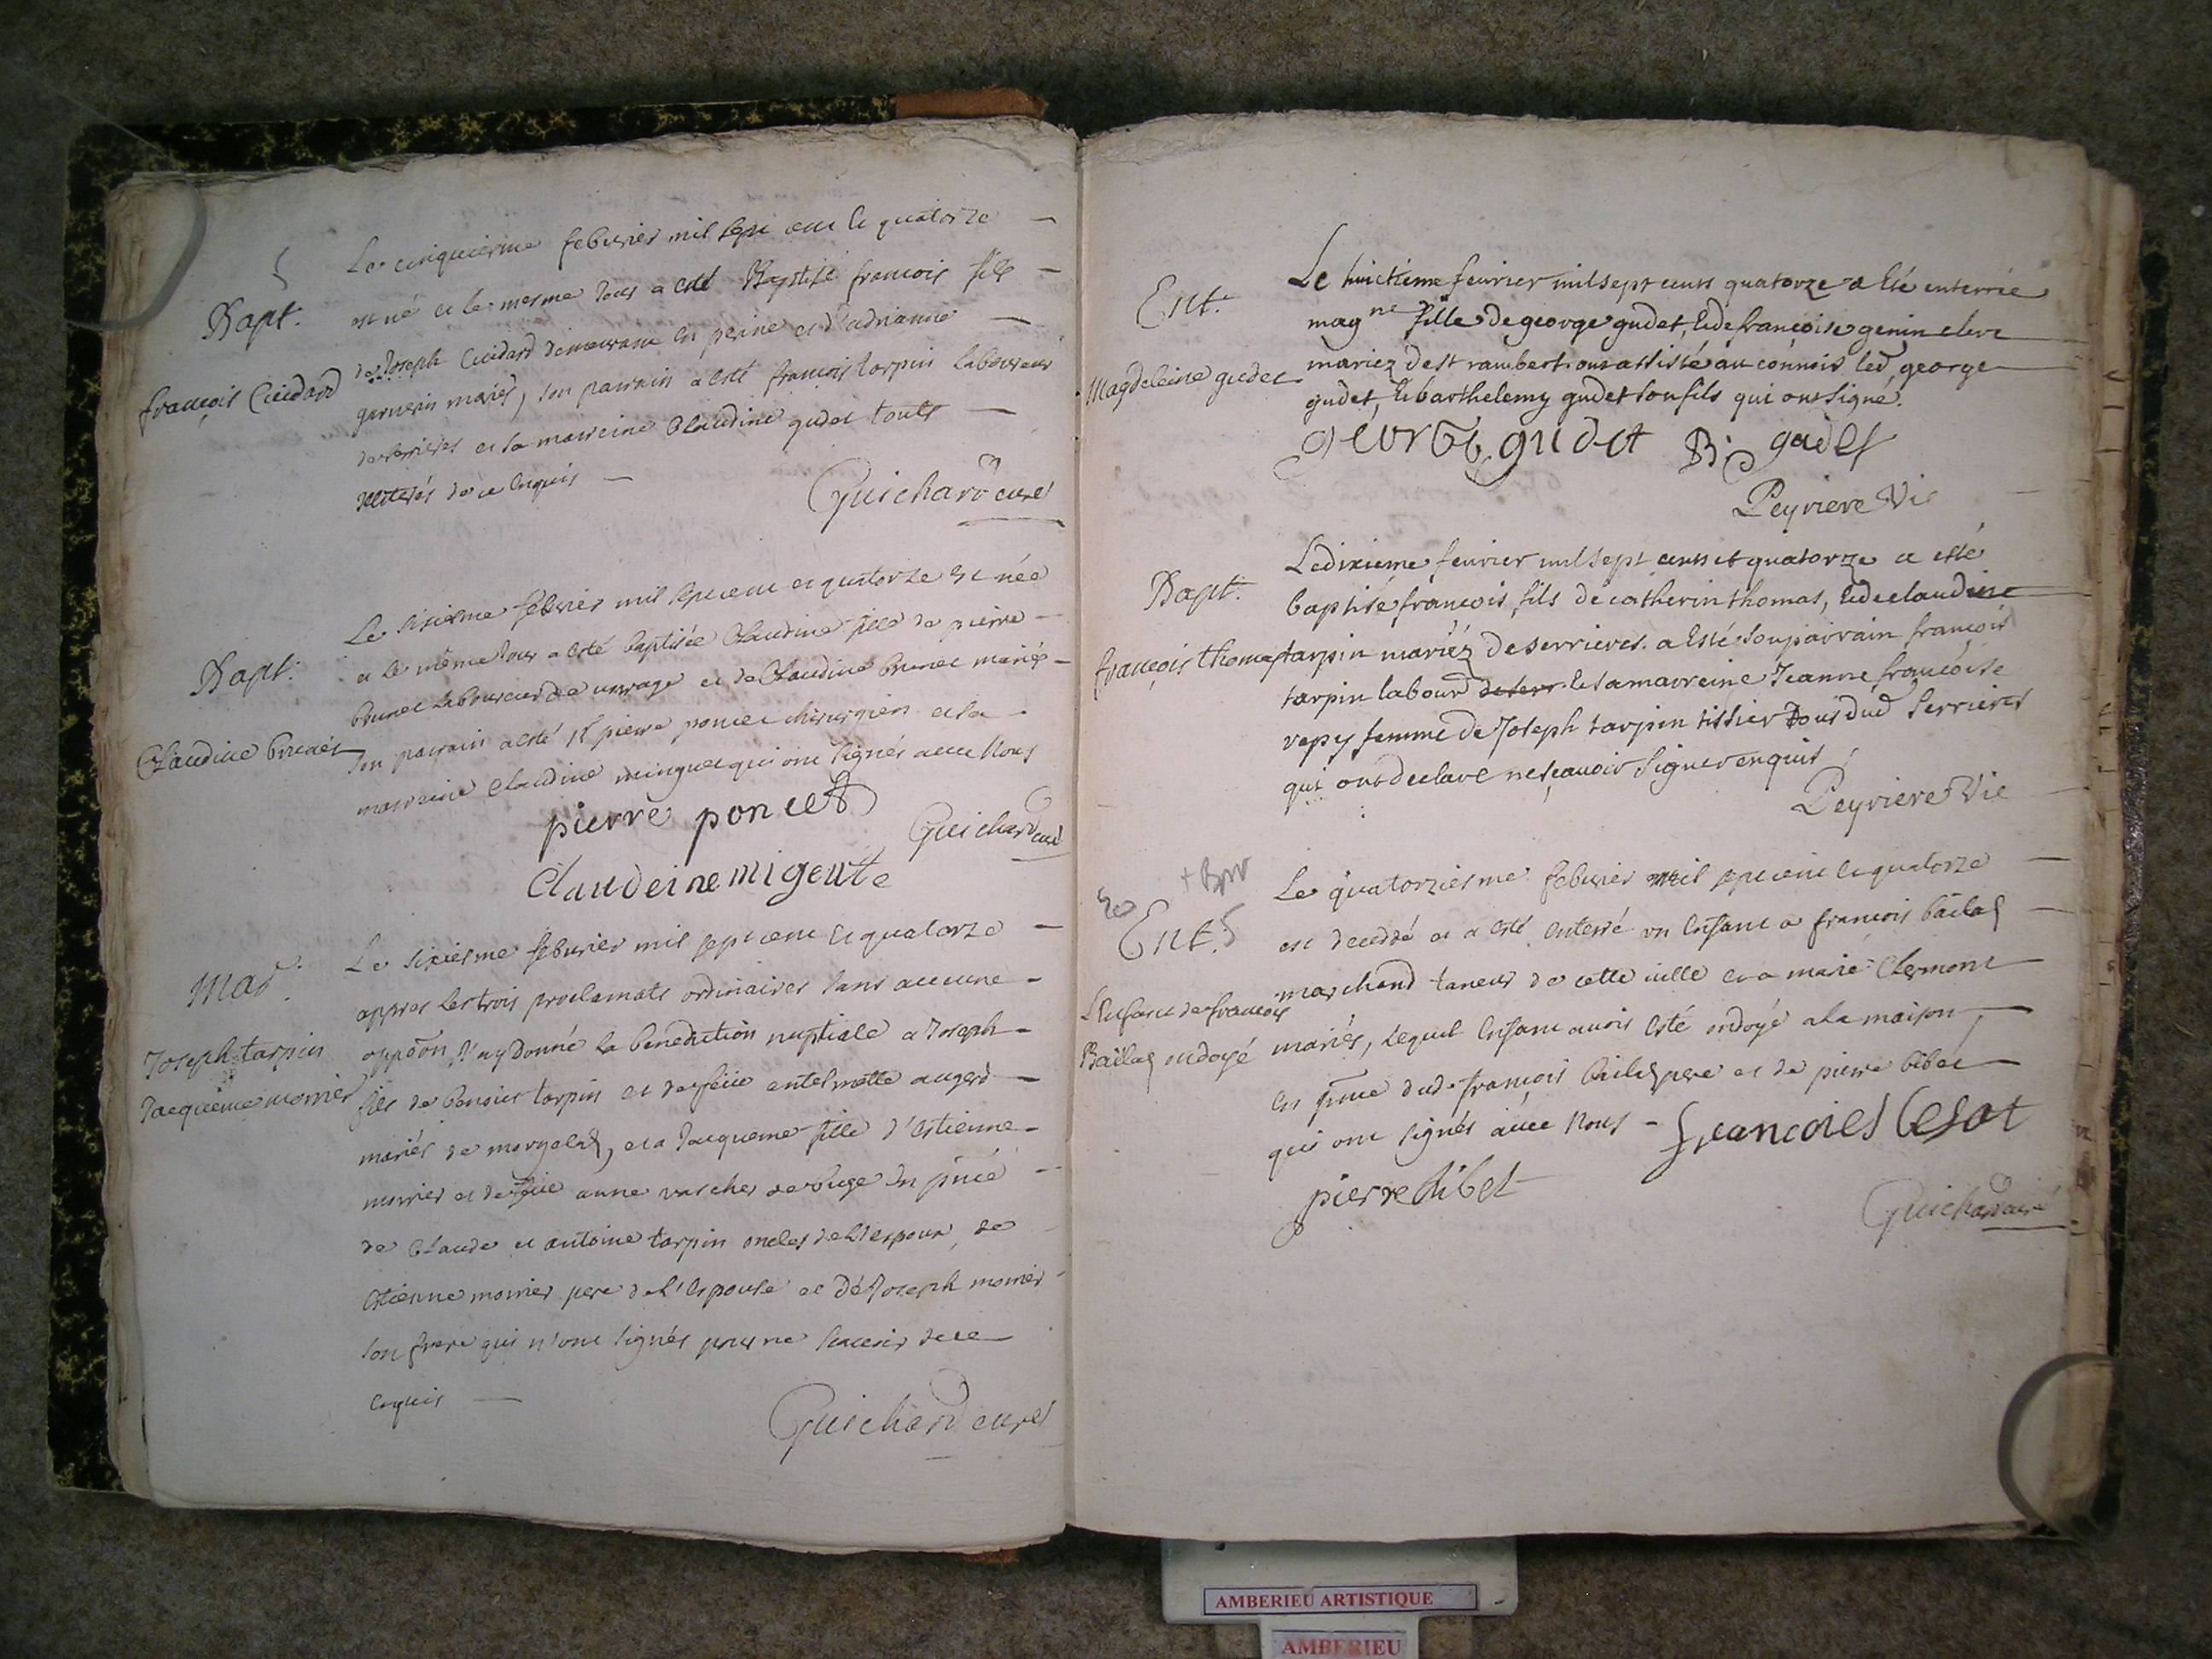 5
Bapt.
françois Cuidard
Le cinquiesme febvrier mil sept cent et quatorze
est né et le mesme Jour a esté Baptisé francois fils
de Joseph Cuidard demeurant en peine et d'adrianne
garnerin mariés, son parrain a esté françois tarpin laboureur
de serrieres et sa marreine Claudine gudet touts
illiterés de ce enquis
Guichard curé
Bapt.
Claudine brunet
Le sixiesme febvrier mil sept cent et quatorze est née
et le même Jour a esté baptisée Claudine fille de pierre
brunet laboureur de et de Claudine brunet mariés
son parrain a esté Sr pierre poncet chirurgien et sa
marreine Claudine minguet qui ont signés avec Nous
pierre poncet
Guichard curé
Claudeine migeute
Mar.
Joseph tarpin
Jacqueme monier
Le sixiesme febvrier mil sept cent et quatorze
appres les trois proclamats ordinaires sans aucune
oppõn J'ay donné la benediction nuptiale a Joseph
fils de benoist tarpin et de feüe antelmette augerd
mariés de morgelas, et a Jacqueme fille d'estienne
monier et de feüe anne vascher de buge En pñce
de Claude et antoine tarpin oncles de L'espoux, de
estienne monier pere de L'espouse et de Joseph monier
son frere qui n'ont signés pour ne scavoir de ce
enquis
Guichard curé
Ent.
Magdeleine gudet
Le huictieme fevrier mil sept cents quatorze a esté enterrée
magne fille de george gudet, et de francoise genin
mariez de st rambert ont assisté au convois led george
gudet, et barthelemy gudet son fils qui ont signé.
george gudet B gudet
Peyriere Vic
Bapt.
françois thomas
Le dixieme fevrier mil sept cents et quatorze a esté
baptisé francois fils de catherin thomas, et de claudine
tarpin mariéz de serrieres. a esté son parrain francois
tarpin labour de serr et sa marreine Jeanne francoise
vepy femme de Joseph tarpin tissier Tous dud serrieres
qui ont declare ne sçavoir signer enquis
Peyriere Vic
Ent. 5
L'enfant de francois
Baïlas ondoyé
Le quatorziesme febvrier mil sept cent et quatorze
est decedé et a esté enterré un Enfant a francois baïlas
marchand taneur de cette ville et a marie Clermont
mariés, Lequel Enfant avoit esté ondoyé a la maison,
En pñce dud francois bailas pere et de pierre bibet
qui ont signés avec Nous
pierre bibet
Guichard curé
AMBERIEU ARTISTIQUE
AMBERIEU